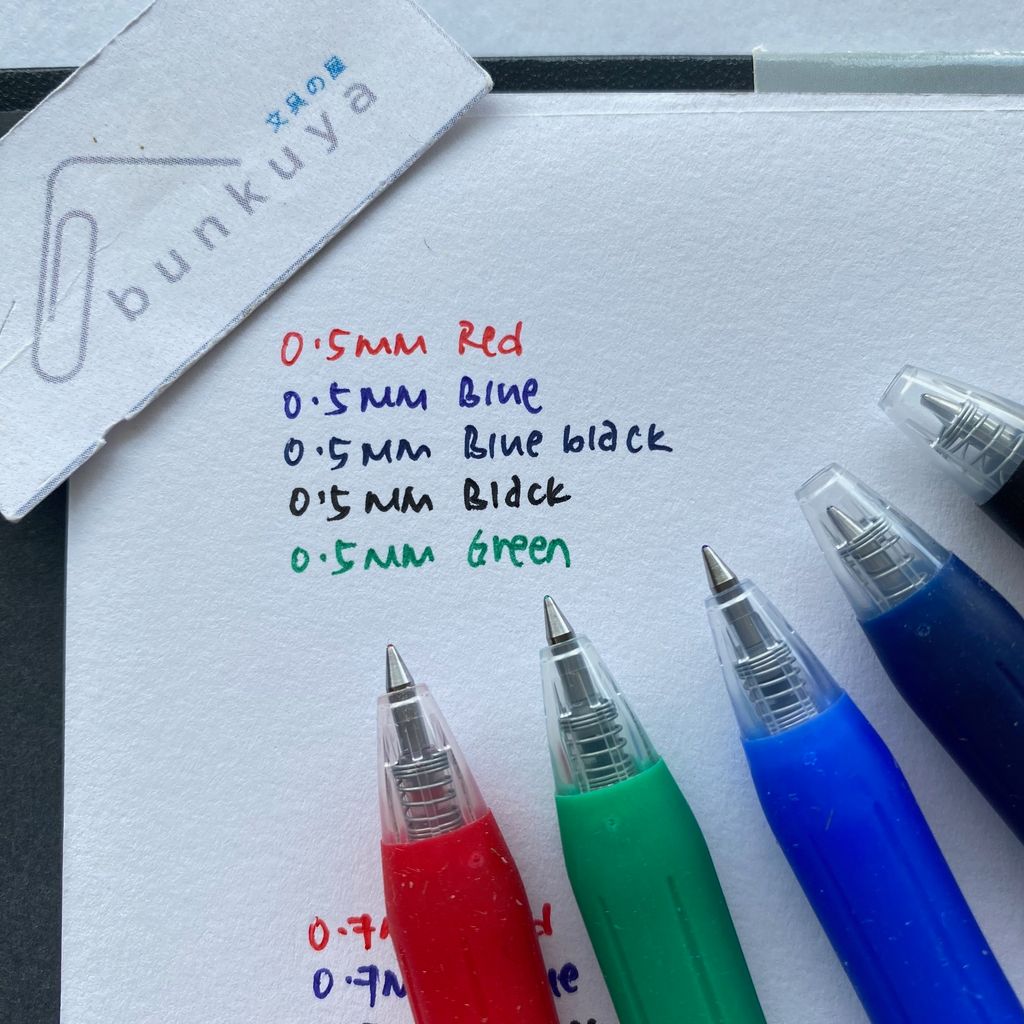 文具の屋
bunkuya
0.5MM Red
0.5MM Blue
0.5MM Blue black
0.5MM Black
0.5MM Green
0.7M
0.7M